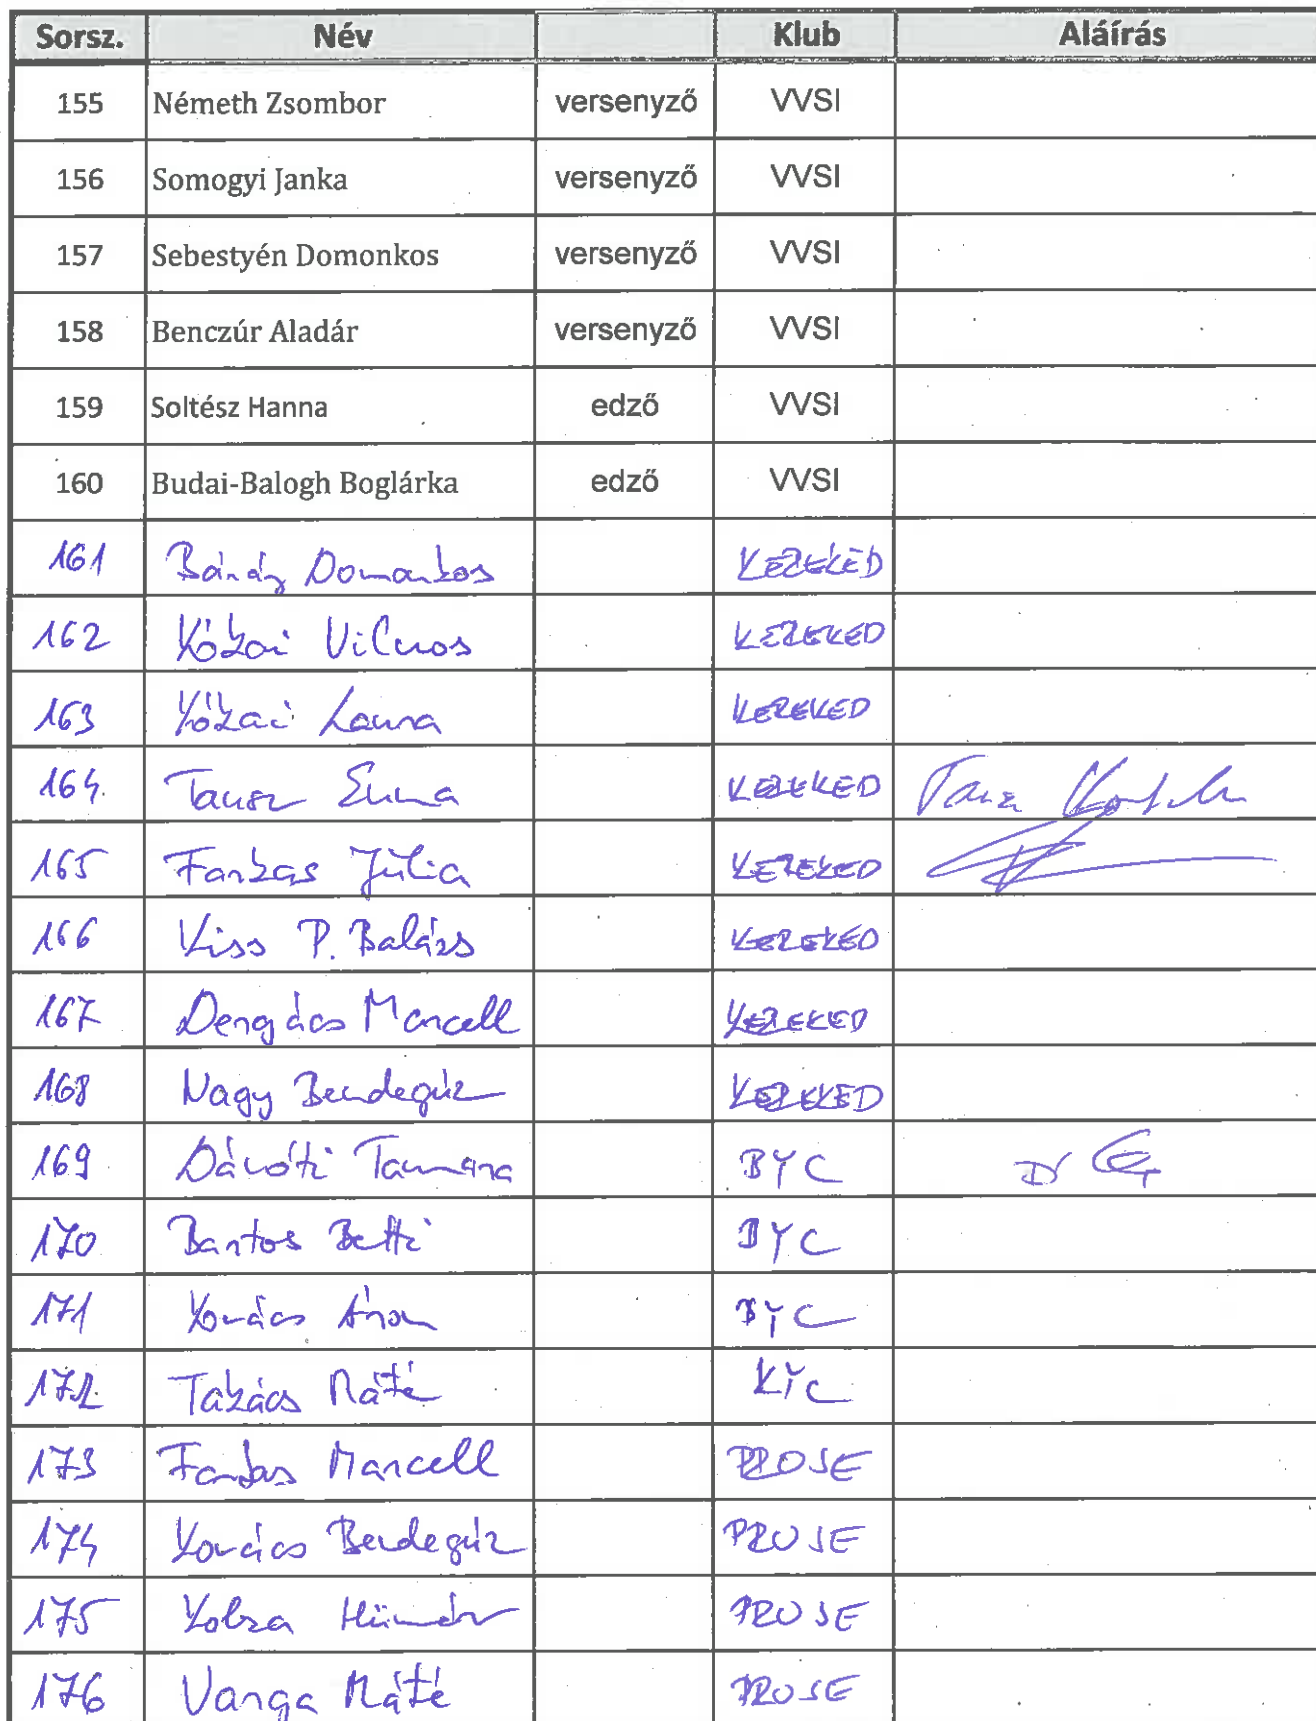 Sorsz. Név Klub Aláírás
155 Németh Zsombor versenyző VVSI
156 Somogyi Janka versenyző VVSI
157 Sebestyén Domonkos versenyző VVSI
158 Benczúr Aladár versenyző VVSI
159 Soltész Hanna edző VVSI
160 Budai-Balogh Boglárka edző VVSI
161 Domonkos KEREKED
162 Kókai Vilmos KEREKED
163 Kókai Laura KEREKED
164. Tausz Emma KEREKED
165 Farkas Júlia KEREKED
166 Kiss P. Balázs KEREKED
167 Marcell KEREKED
168 Nagy Bendegúz KEREKED
169 Tamara BYC Dr
170 Bartos Betti BYC
171 Kovács Áron BYC
172 Takács Máté KYC
173 Farkas Marcell PROSE
174 Kovács Bendegúz PROSE
175 PROSE
176 Varga Máté PROSE